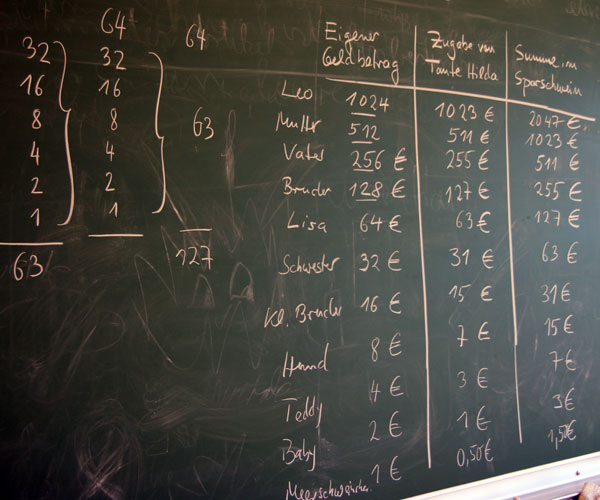 32
16
8
4
2
1
63
64
32
16
8
4
2
1
64
63
127
Eigener Geldbetrag
Zugabe von Tante Hilda
Summe im Sparschwein
Leo 1024 1023 € 2047 €
Mutter 512 511 € 1023 €
Vater 256 € 255 € 511 €
Bruder 128 € 127 € 255 €
Lisa 64 € 63 € 127 €
Schwester 32 € 31 € 63 €
Kl. Bruder 16 € 15 € 31 €
Hund 8 € 7 € 15 €
Teddy 4 € 3 € 7 €
Baby 2 € 1 € 3 €
Meerschweinchen 1 € 0,50 € 1,50 €